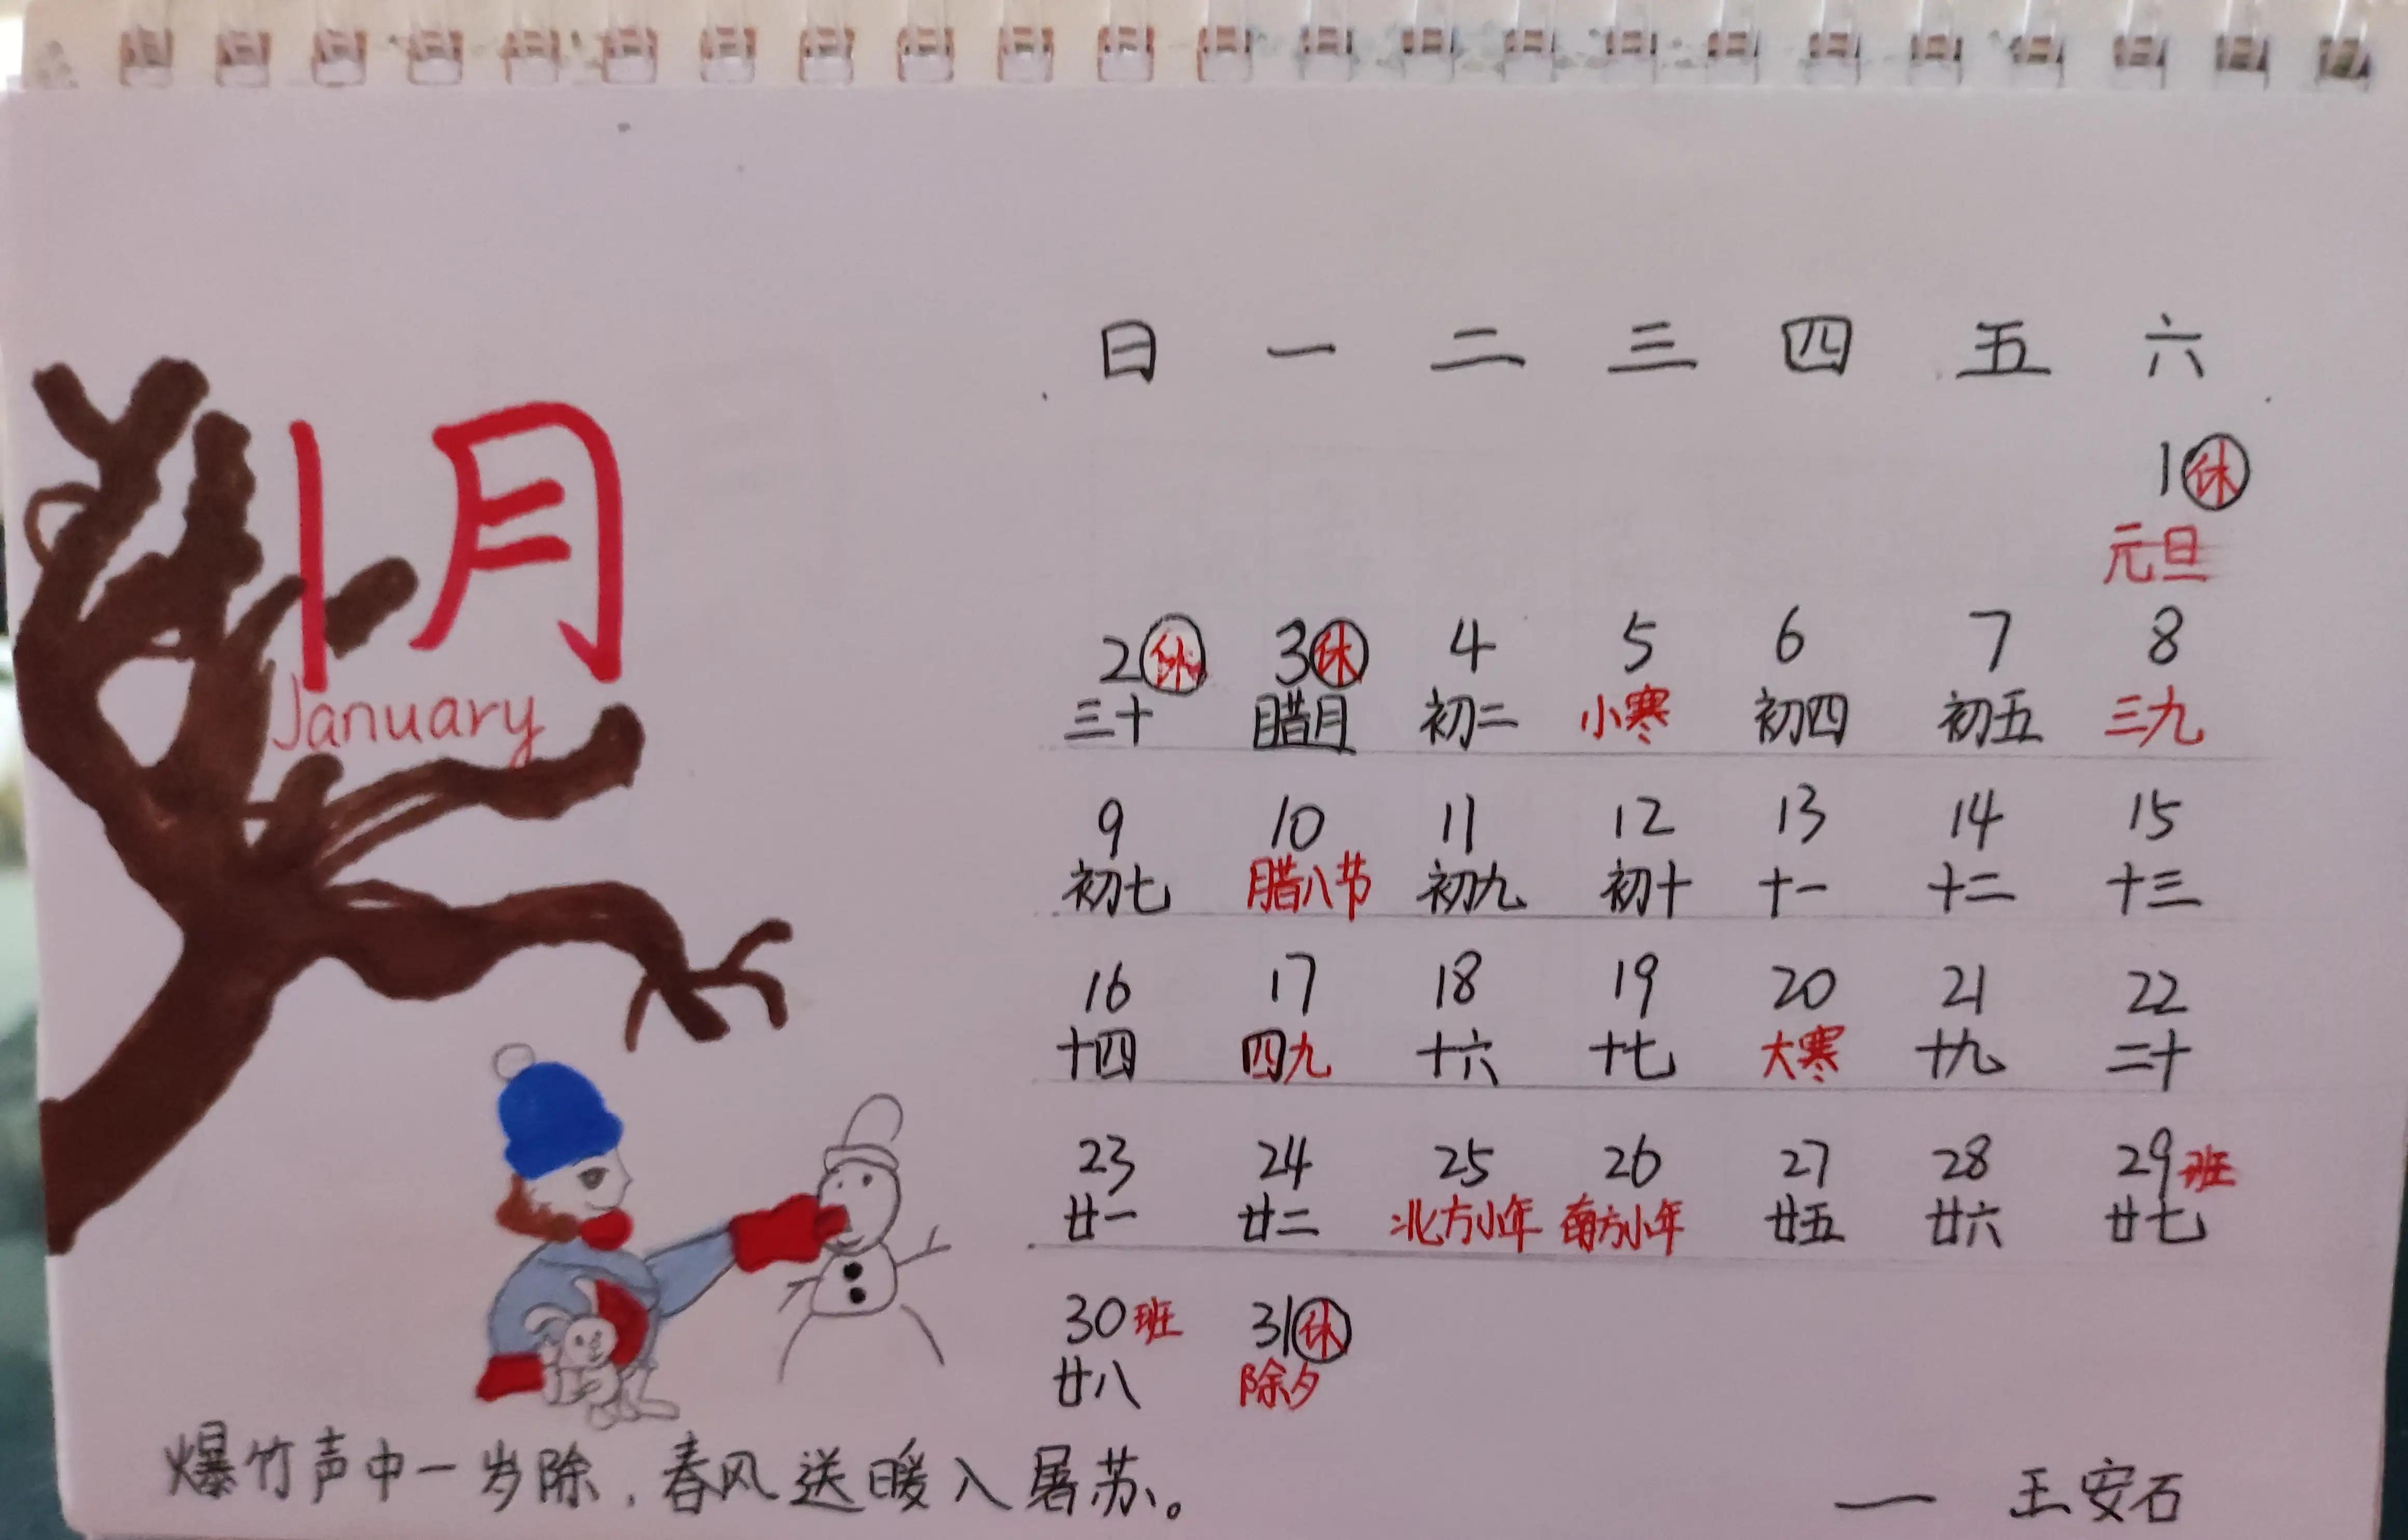 1月
January
日 一 二 三 四 五 六
1 休
元旦
2 休 3 休 4 5 6 7 8
三十 腊月 初二 小寒 初四 初五 三九
9 10 11 12 13 14 15
初七 腊八节 初九 初十 十一 十二 十三
16 17 18 19 20 21 22
十四 四九 十六 十七 大寒 十九 二十
23 24 25 26 27 28 29 班
廿一 廿二 北方小年 南方小年 廿五 廿六 廿七
30 班 31 休
廿八 除夕
爆竹声中一岁除,春风送暖入屠苏。
—— 王安石